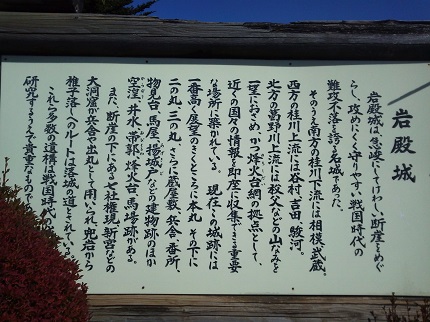 岩殿城
岩殿城は急峻でけわしい断崖をめぐ
らし、攻めにくく守りやすい戦国時代の
難攻不落を誇る名城であった。
そのうえ南方の桂川下流には相模、武蔵。
西方の桂川上流には谷村、吉田、駿河。
北方の葛野川上流には秩父などの山なみを
一望におさめ、かつ烽火台網の拠点として、
近くの国々の情報を即座に収集できる重要
な場所に築かれている。現在この城跡には
一番高く展望のきくところに本丸、その下に
二の丸、三の丸、さらに蔵屋敷、兵舎、番所、
物見台、馬屋、揚城戸などの建物跡のほか
空湟、井水、帯郭、烽火台、馬場跡がある。
また、断崖の下にある七社権現、新宮などの
大洞窟が兵舎や出丸として用いられ、兜岩から
稚子落へのルートは落城の道とされている。
これら多数の遺構は戦国時代の
研究するうえで貴重なもので